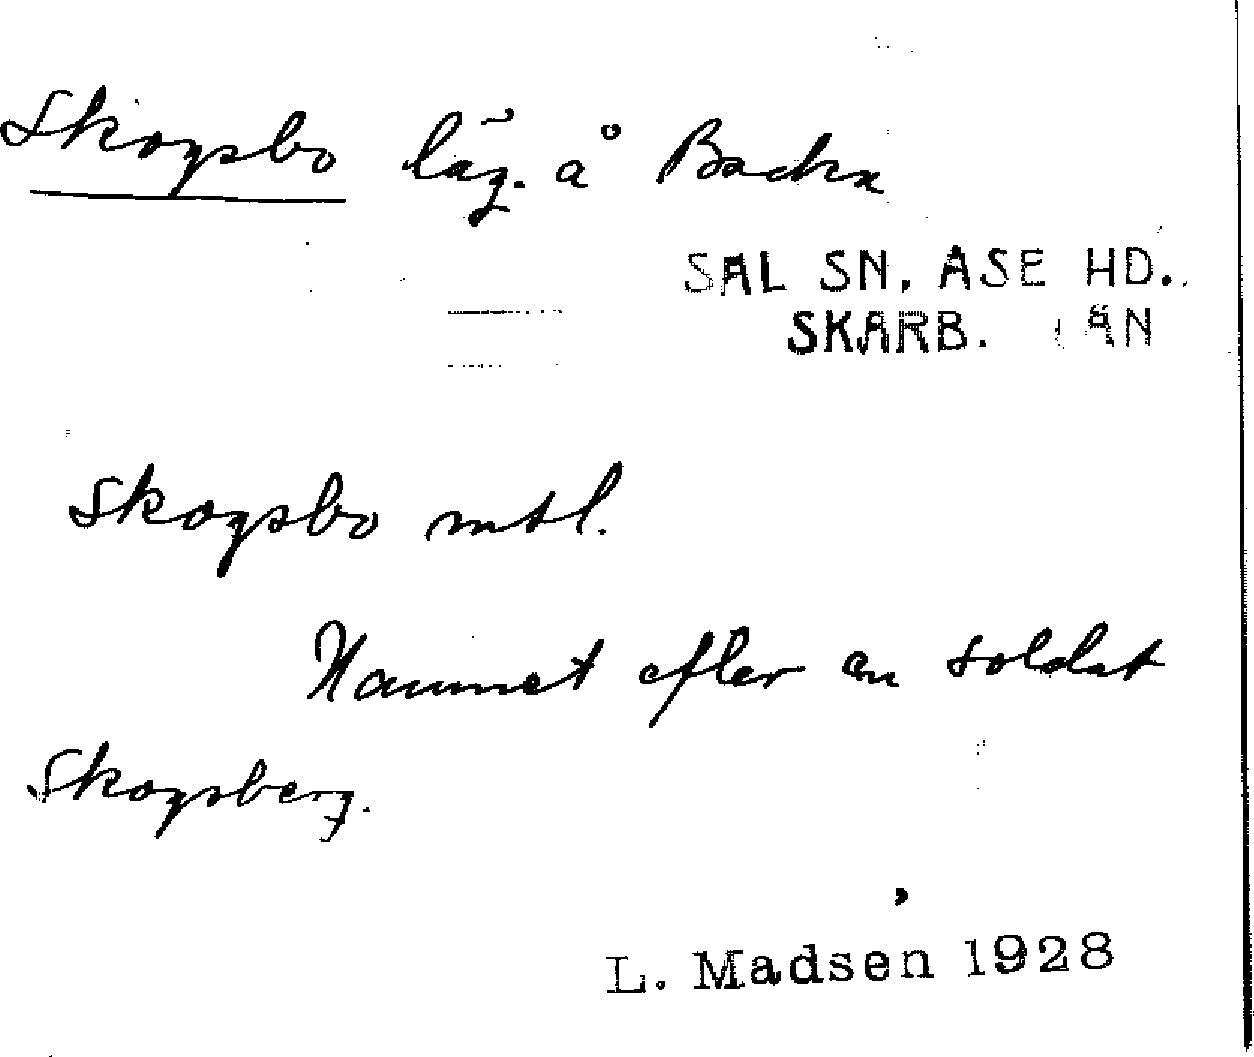 Skogsbo läg. å Backa
SAL SN. ÅSE HD.
SKARB. LÄN
Skogsbo mtl.
Namnet efter en soldat
Skogsberg.
L. Madsen 1928